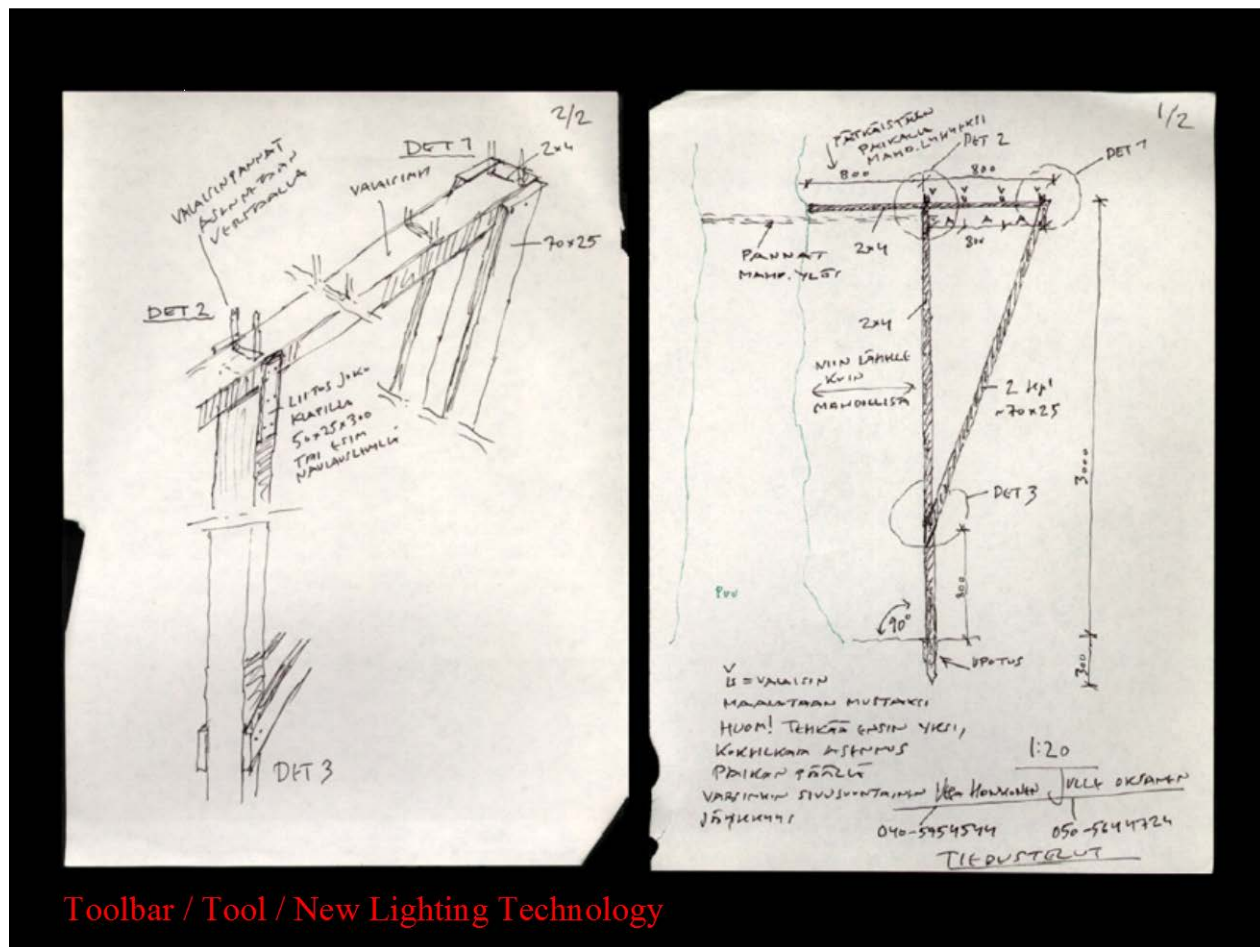 2/2
DET 1
2x4
VALAISINPANNAT
ASENNETAAN
VERSTAALLA
VALAISIN
70x25
DET 2
LIITOS JOKO
KLAPILLA
50x25x300
TAI ESIM
NAULAUSLEVYLLÄ
DET 3
1/2
PÄTKÄISTÄÄN
PAIKALLA
MAHD. LYHYEKSI
DET 2
DET 1
800
800
PANNAT
MAHD. YLÖS
2x4
A A A
800
2x4
NIIN LÄHELLE
KUIN
MAHDOLLISTA
2 kpl
~70x25
3000
DET 3
PUU
90°
800
300
UPOTUS
= VALAISIN
MAALATAAN MUSTAKSI
HUOM! TEHKÄÄ ENSIN YKSI,
KOKEILKAA ASENNUS
PAIKAN PÄÄLLÄ
VARSINKIN SIVUSUUNTAINEN
JÄYKKYYS
1:20
VESA HONKONEN, JULLE OKSANEN
040-5954544
050-5644724
TIEDUSTELUT
Toolbar / Tool / New Lighting Technology